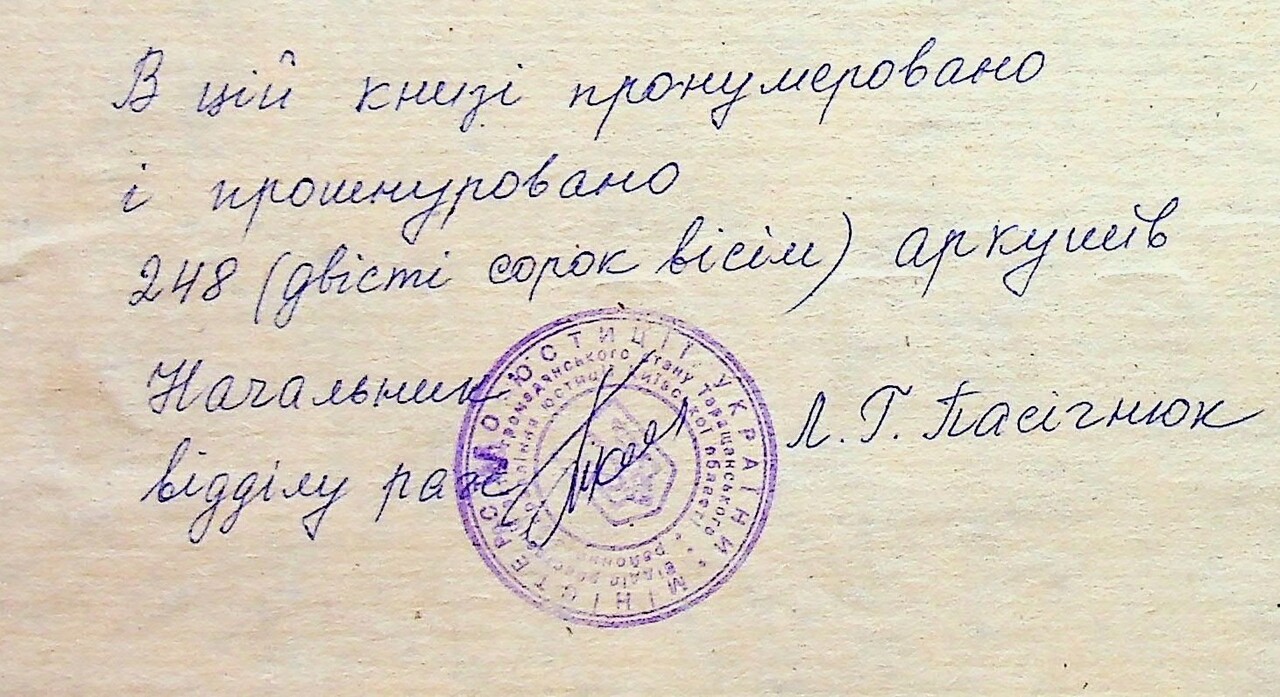 В цій книзі пронумеровано
і прошнуровано
248 (двісті сорок вісім) аркушів
Начальник
відділу рагс Л. Г. Пасігнюк
МІНІСТЕРСТВО ЮСТИЦІЇ УКРАЇНИ
громадянського стану Таращанського
юстиції Київської області